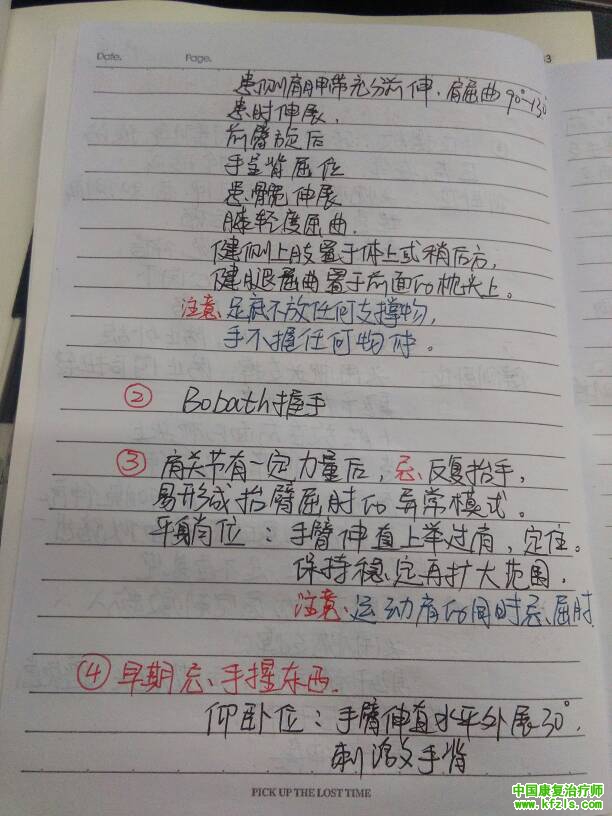 Date.
Page.
3
患侧肩胛带充分前伸、肩屈曲90°-130°
患肘伸展.
前臂旋后
手呈背屈位
患髋伸展
膝轻度屈曲.
健侧上肢置于体上或稍后方,
健腿屈曲置于前面的枕头上。
注意、足底不放任何支撑物,
手不握任何物体。
② Bobath握手
③ 肩关节有一定力量后,忌、反复抬手,
易形成抬臂屈肘的异常模式。
卧位:手臂伸直上举过肩,定住。
保持稳定再扩大范围.
注意、运动肩的同时忌、屈肘
④ 早期忌、手握东西.
仰卧位:手臂伸直水平外展30°.
刺激手背
PICK UP THE LOST TIME
中国康复治疗师
www.kfzls.com